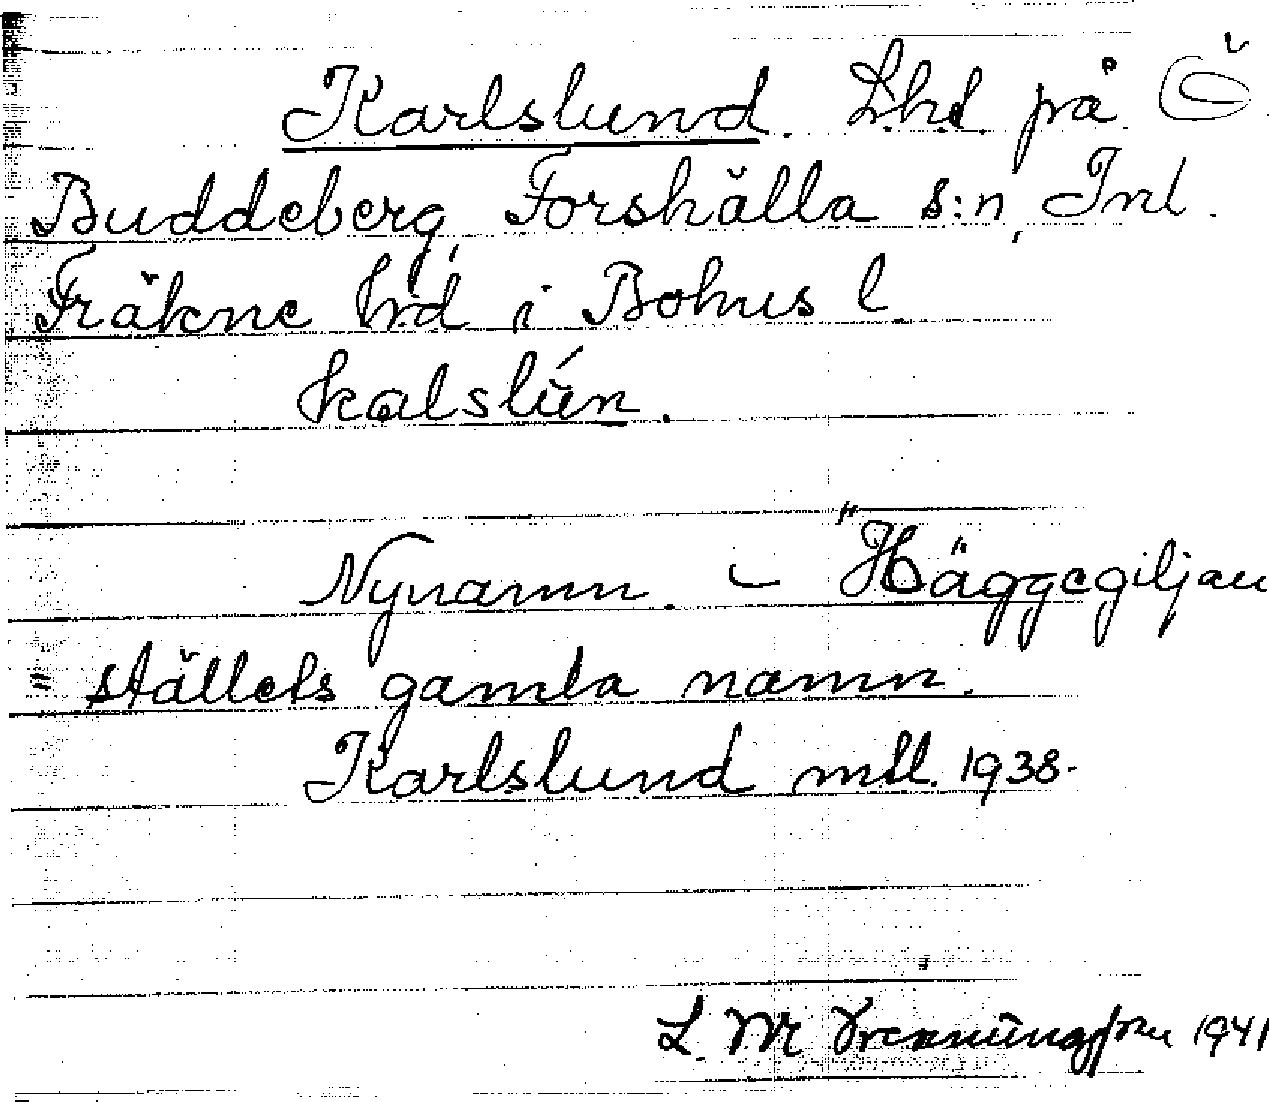 Karlslund. Lhl. på Ö
Buddeberg, Forshälla s:n, Inl.
Fräkne hrd i Bohus l.
kalslún.
Nynamn. – "Häggegiljan
= ställets gamla namn.
Karlslund mtl. 1938.
L. M 1941